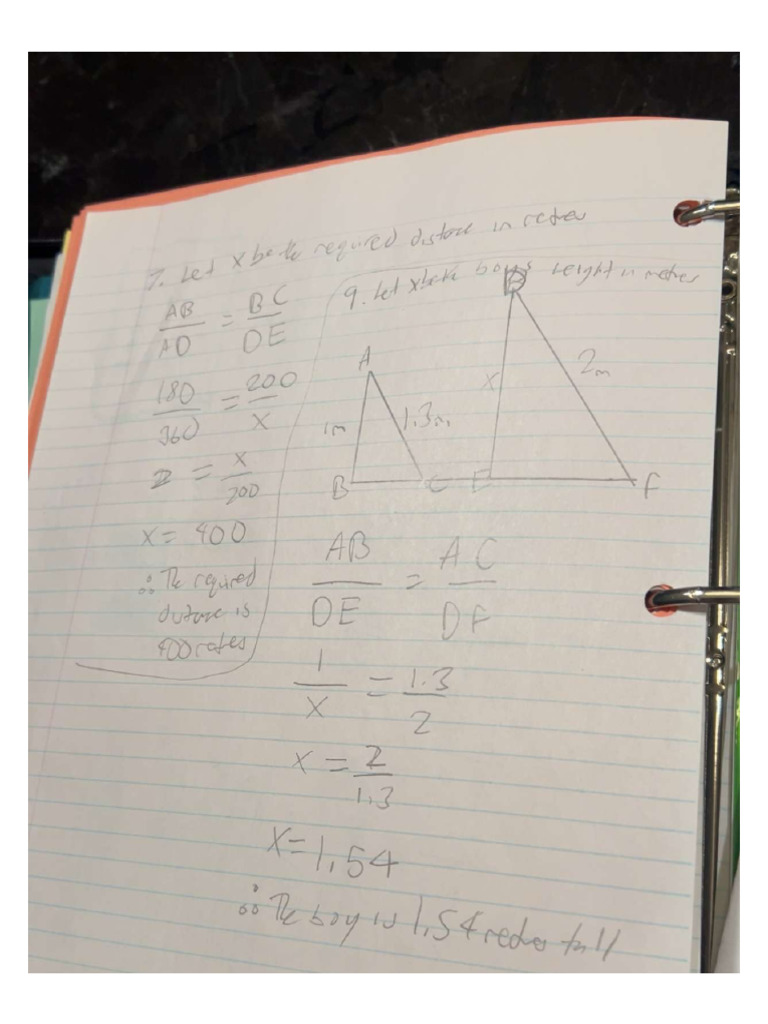 7. Let x be the required distance in metres
AB/AD = BC/DE
180/360 = 200/x
2 = x/200
x = 400
∴ The required
distance is
400 metres
9. Let x be the boy's height in metres
A
1m
1.3m
B
C
D
x
2m
E
F
AB/DE = AC/DF
1/x = 1.3/2
x = 2/1.3
x = 1.54
∴ The boy is 1.54 metres tall